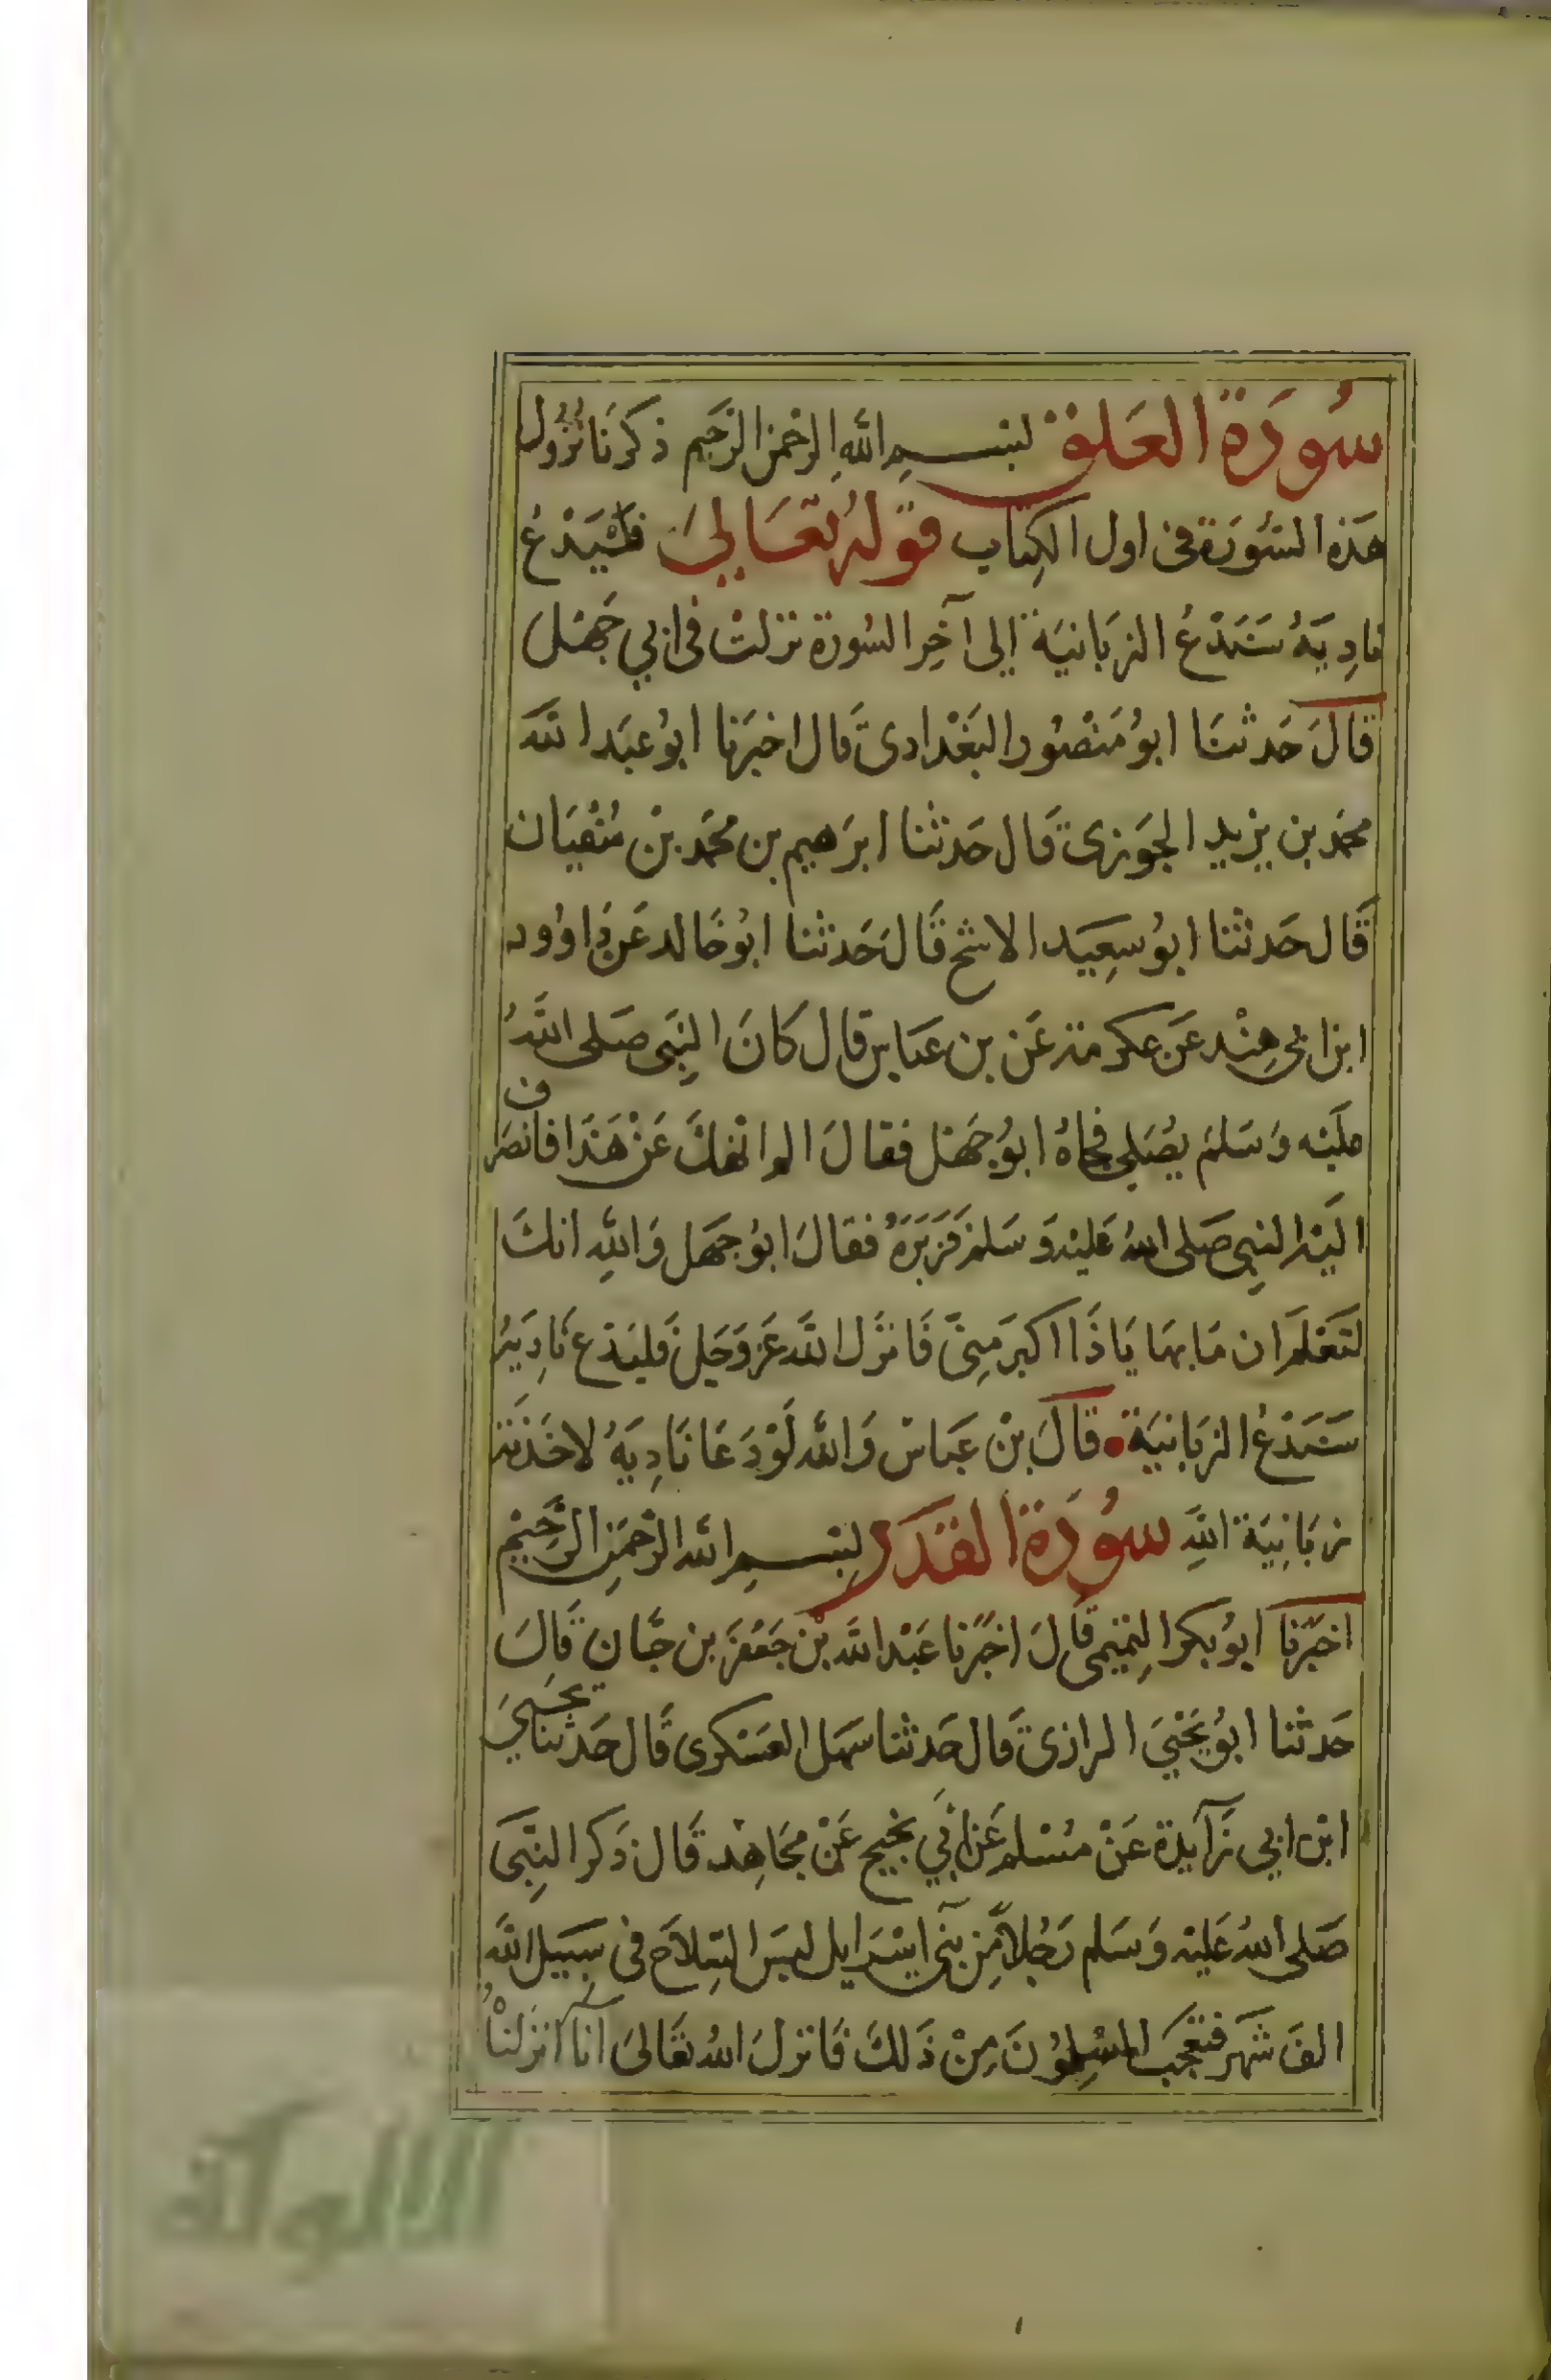 سُورَة العَلق بسم الله الرحمن الرحيم ذكرنا نزول
هذه السورة فى اول الكتاب قوله تعالى فليدع
ناديه سندع الزبانية إلى آخر السورة نزلت فى ابي جهل
قال حدثنا ابو منصور البغدادى قال اخبرنا ابو عبد الله
محمد بن يزيد الجوزى قال حدثنا ابرهيم بن محمد بن سفيان
قال حدثنا ابو سعيد الاشج قال حدثنا ابو خالد عن داوود
ابن ابى هند عن عكرمة عن بن عباس قال كان النبى صلى الله
عليه وسلم يصلى فجاه ابو جهل فقال الم انهك عن هذا فانصرف
اليه النبى صلى الله عليه وسلم فزبره فقال ابو جهل والله انك
لتعلم ان ما بها ياذا اكبر منى فانزل الله عز وجل فليدع ناديه
سندع الزبانية قال بن عباس والله لو دعا ناديه لاخذته
زبانية الله سورة القدر بسم الله الرحمن الرحيم
اخبرنا ابو بكر التميمى قال اخبرنا عبد الله بن جعفر بن حبان قال
حدثنا ابو يحيى الرازى قال حدثنا سهل العسكرى قال حدثنا يحيى
ابن ابي زآيدة عن مسلم عن ابي نجيح عن مجاهد قال ذكر النبى
صلى الله عليه وسلم رجلا من بنى اسرايل لبس السلاح فى سبيل الله
الف شهر فتعجب المسلمون من ذلك فانزل الله تعالى انا انزلناه
الالوكة